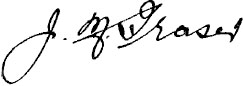 J. M. Fraser